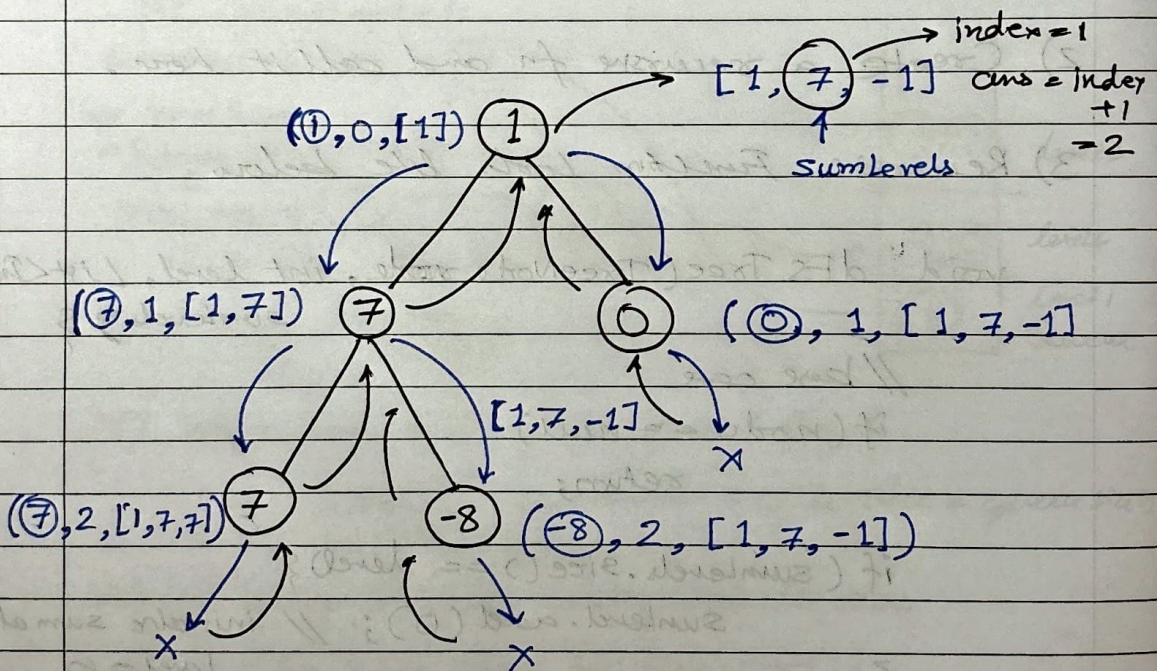 index = 1
[1, 7, -1] ans = index
+1
= 2
sumLevels
(1, 0, [1]) 1
(7, 1, [1,7]) 7
0 (0, 1, [1, 7, -1]
[1,7,-1]
x
(7, 2, [1,7,7]) 7
-8 (-8, 2, [1, 7, -1])
x
x